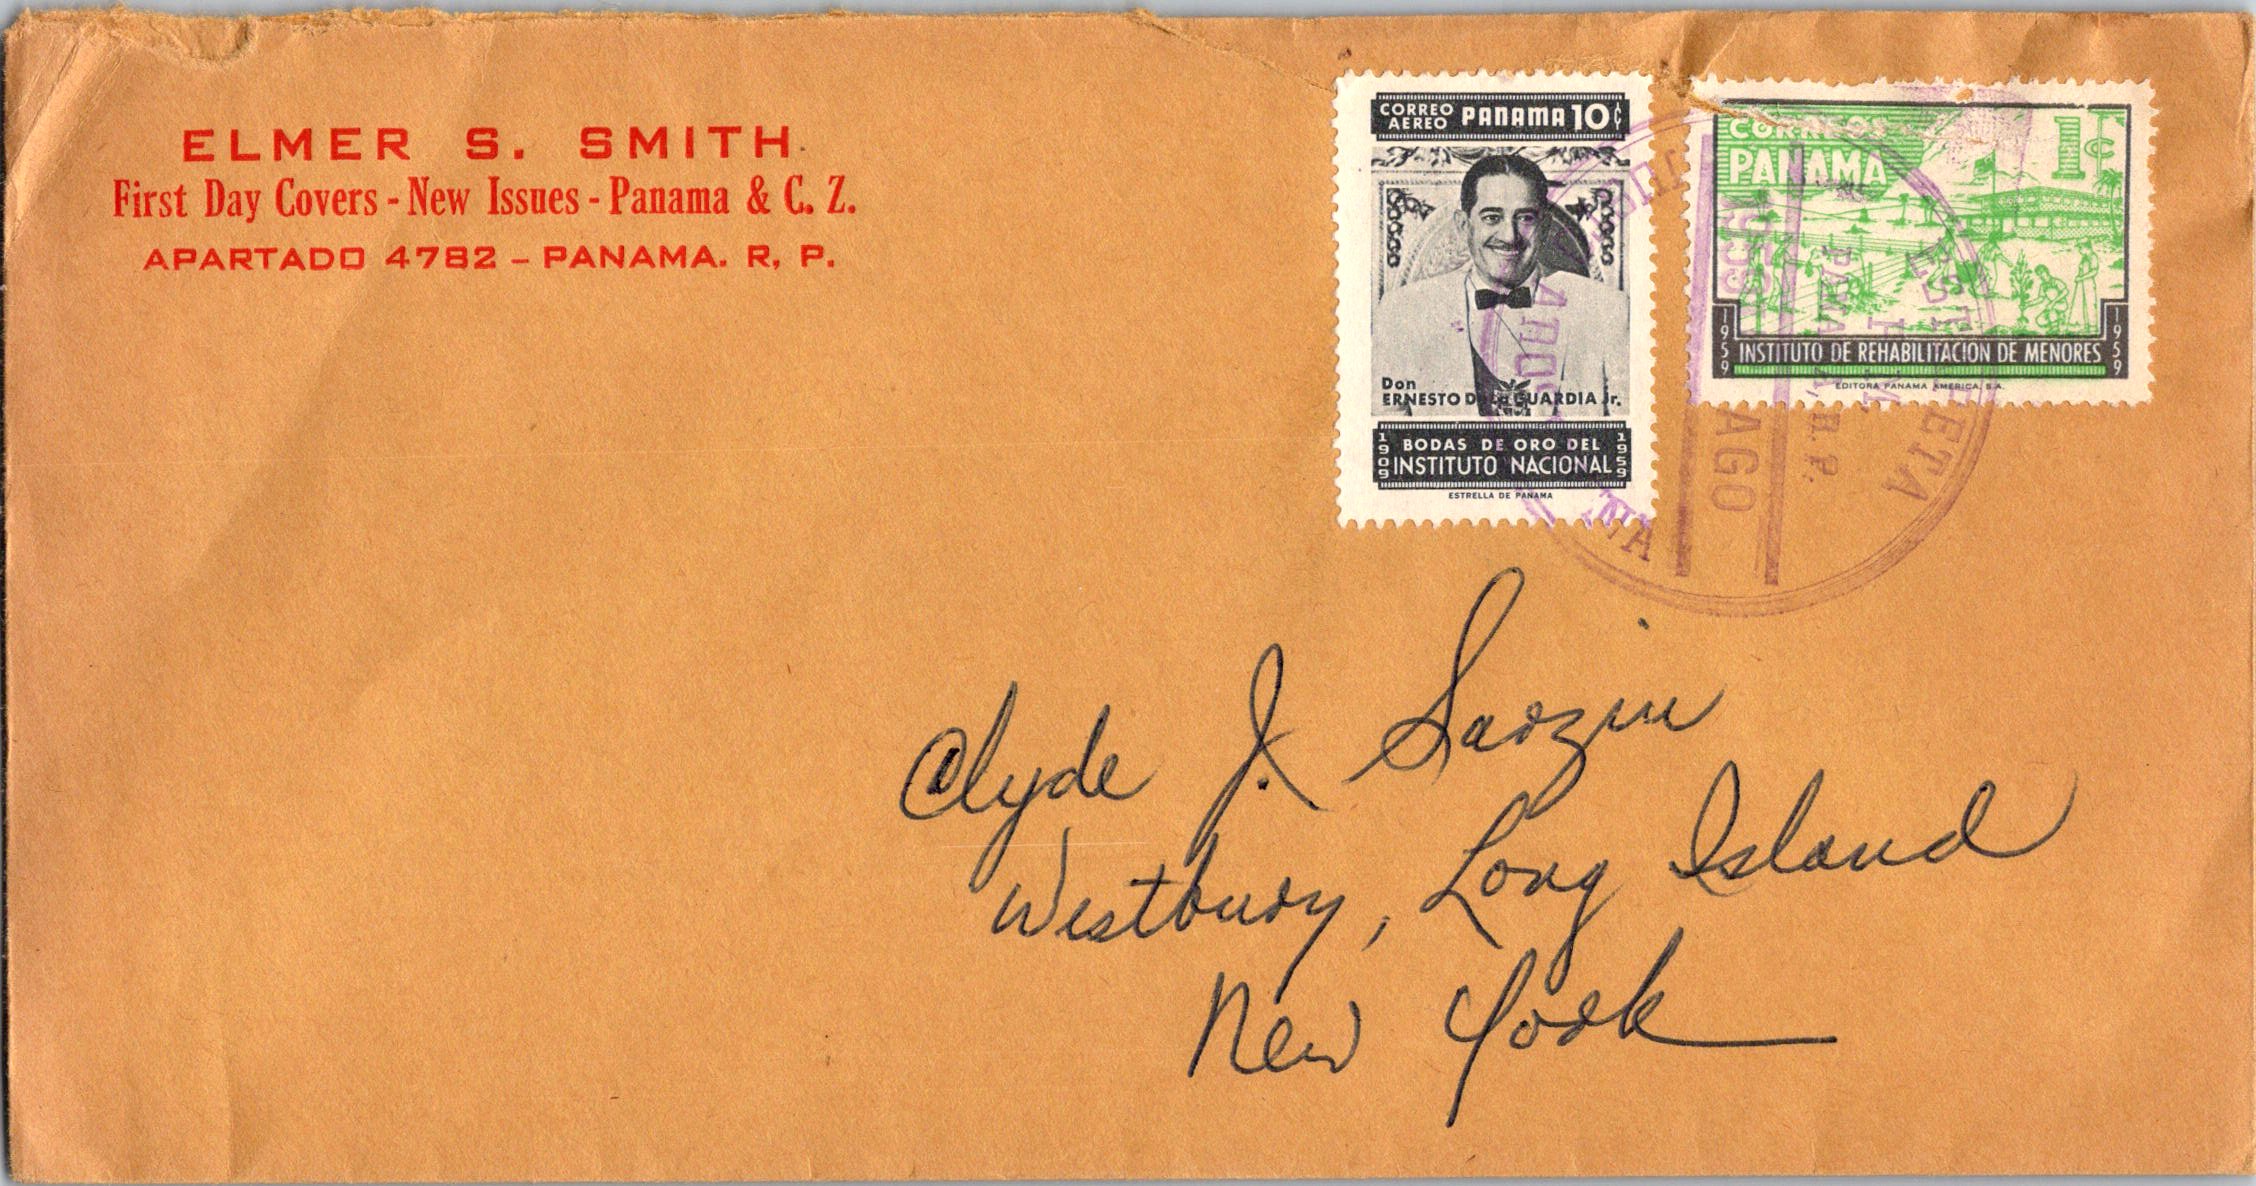 ELMER S. SMITH
First Day Covers - New Issues - Panama & C. Z.
APARTADO 4782 - PANAMA. R, P.
CORREO AEREO PANAMA 10
Don
ERNESTO De La GUARDIA Jr.
1909 BODAS DE ORO DEL 1959
INSTITUTO NACIONAL
ESTRELLA DE PANAMA
CORREOS 1c
PANAMA
1959 INSTITUTO DE REHABILITACION DE MENORES 1959
EDITORA PANAMA AMERICA, S.A.
AGO
PANAMA, R. P.
Clyde J. Sarzin
Westbury, Long Island
New York